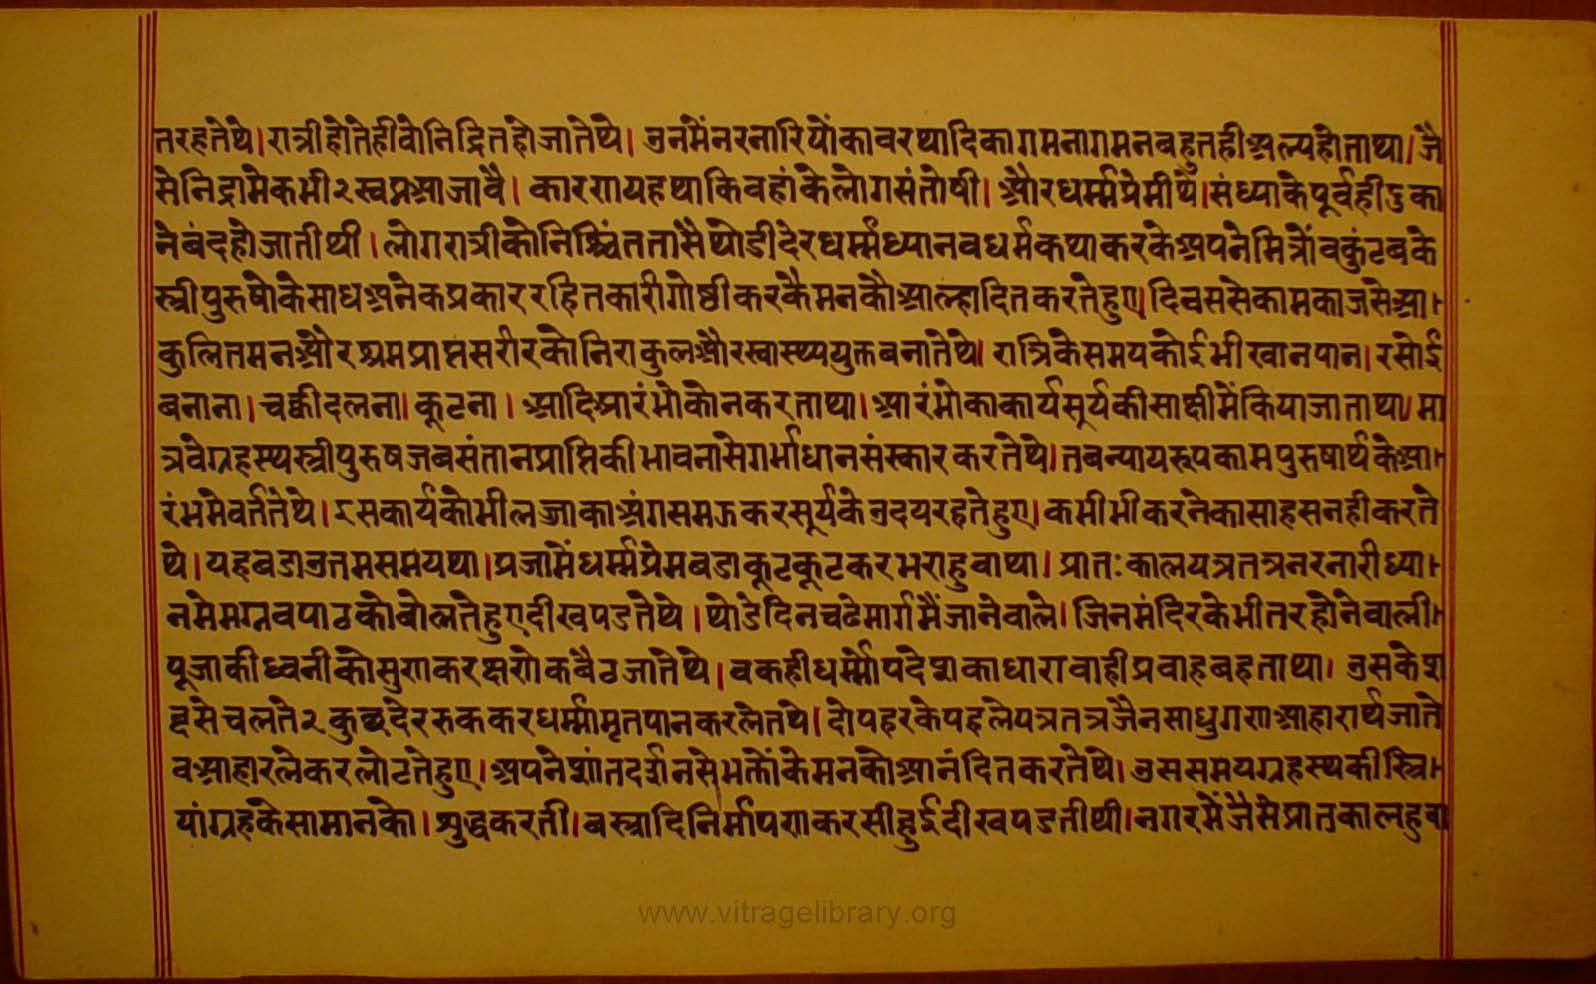 तरहतेथे।रात्रीहोतेहीवोनिद्रितहोजातेथे। उनमेंनरनारियोंकावरथादिकागमनागमनबहुतहीअल्पहोताथा।जै
सेनिद्रामेकभी२स्वप्नआजावै। कारणयहथाकिवहांकेलोगसंतोषी।औरधर्म्मप्रेमीथे।संध्याकेपूर्वहीदुका
नेबंदहोजातीथी।लोगरात्रीकोनिश्चिंततासैथोडीदेरधर्म्मध्यानवधर्मकथाकरकेअपनेमित्रोंवकुंटबके
स्त्रीपुरुषोकेसाथअनेकप्रकाररहितकारीगोष्ठीकरकैमनकौआल्हादितकरतेहुए।दिवससेकामकाजसेआ-
कुलितमनऔरश्रमप्राप्तसरीरकोनिराकुलऔरस्वास्थ्ययुक्तबनातेथे। रात्रिकेसमयकोईभीखानपान।रसोई
बनाना।चक्कीदलना।कूटना।आदिआरंभोकोनकरताथा।आरंभोकाकार्यसूर्यकीसाक्षीमेंकियाजाताथा।मा
त्रवेग्रहस्थस्त्रीपुरुषजबसंतानप्राप्तिकीभावनासेगर्भाधानसंस्कारकरतेथे।तबन्यायरूपकामपुरुषार्थकेआ-
रंभमेवर्ततेथे।इसकार्यकोभीलज्जाकाअंगसमझकरसूर्यकेउदयरहतेहुए।कभीभीकरनेकासाहसनहीकरते
थे।यहबडाउत्तमसमयथा।प्रजामेंधर्म्मप्रेमबडाकूटकूटकरभराहुवाथा। प्रातःकालयत्रतत्रनरनारीध्या-
नमेमग्नवपाठकोबोलतेहुएदीखपडतेथे।थोडेदिनचढेमार्गमैंजानेवाले।जिनमंदिरकेभीतरहोनेवाली-
पूजाकीध्वनीकोसुणकरक्षणेकबैठजातेथे।वकहीधर्म्मोपदेशकाधारावाहीप्रवाहबहताथा। उसकेश
द्वसेचलते२कुछदेररुककरधर्म्मामृतपानकरलेतथे।दोपहरकेपहलेयत्रतत्रजैनसाधुगणआहारार्थजाते
वआहारलेकरलोटतेहुए।अपनेशांतदर्शनसेभक्तोंकेमनकोआनंदितकरतेथे।उससमयग्रहस्थकीस्त्रि-
यांग्रहकेसामानको।शुद्धकरती।वस्त्रादिनिर्मापणकरसीहुईदीखपडतीथी।नगरमेंजैसेप्रातकालहुवा
www.vitragelibrary.org